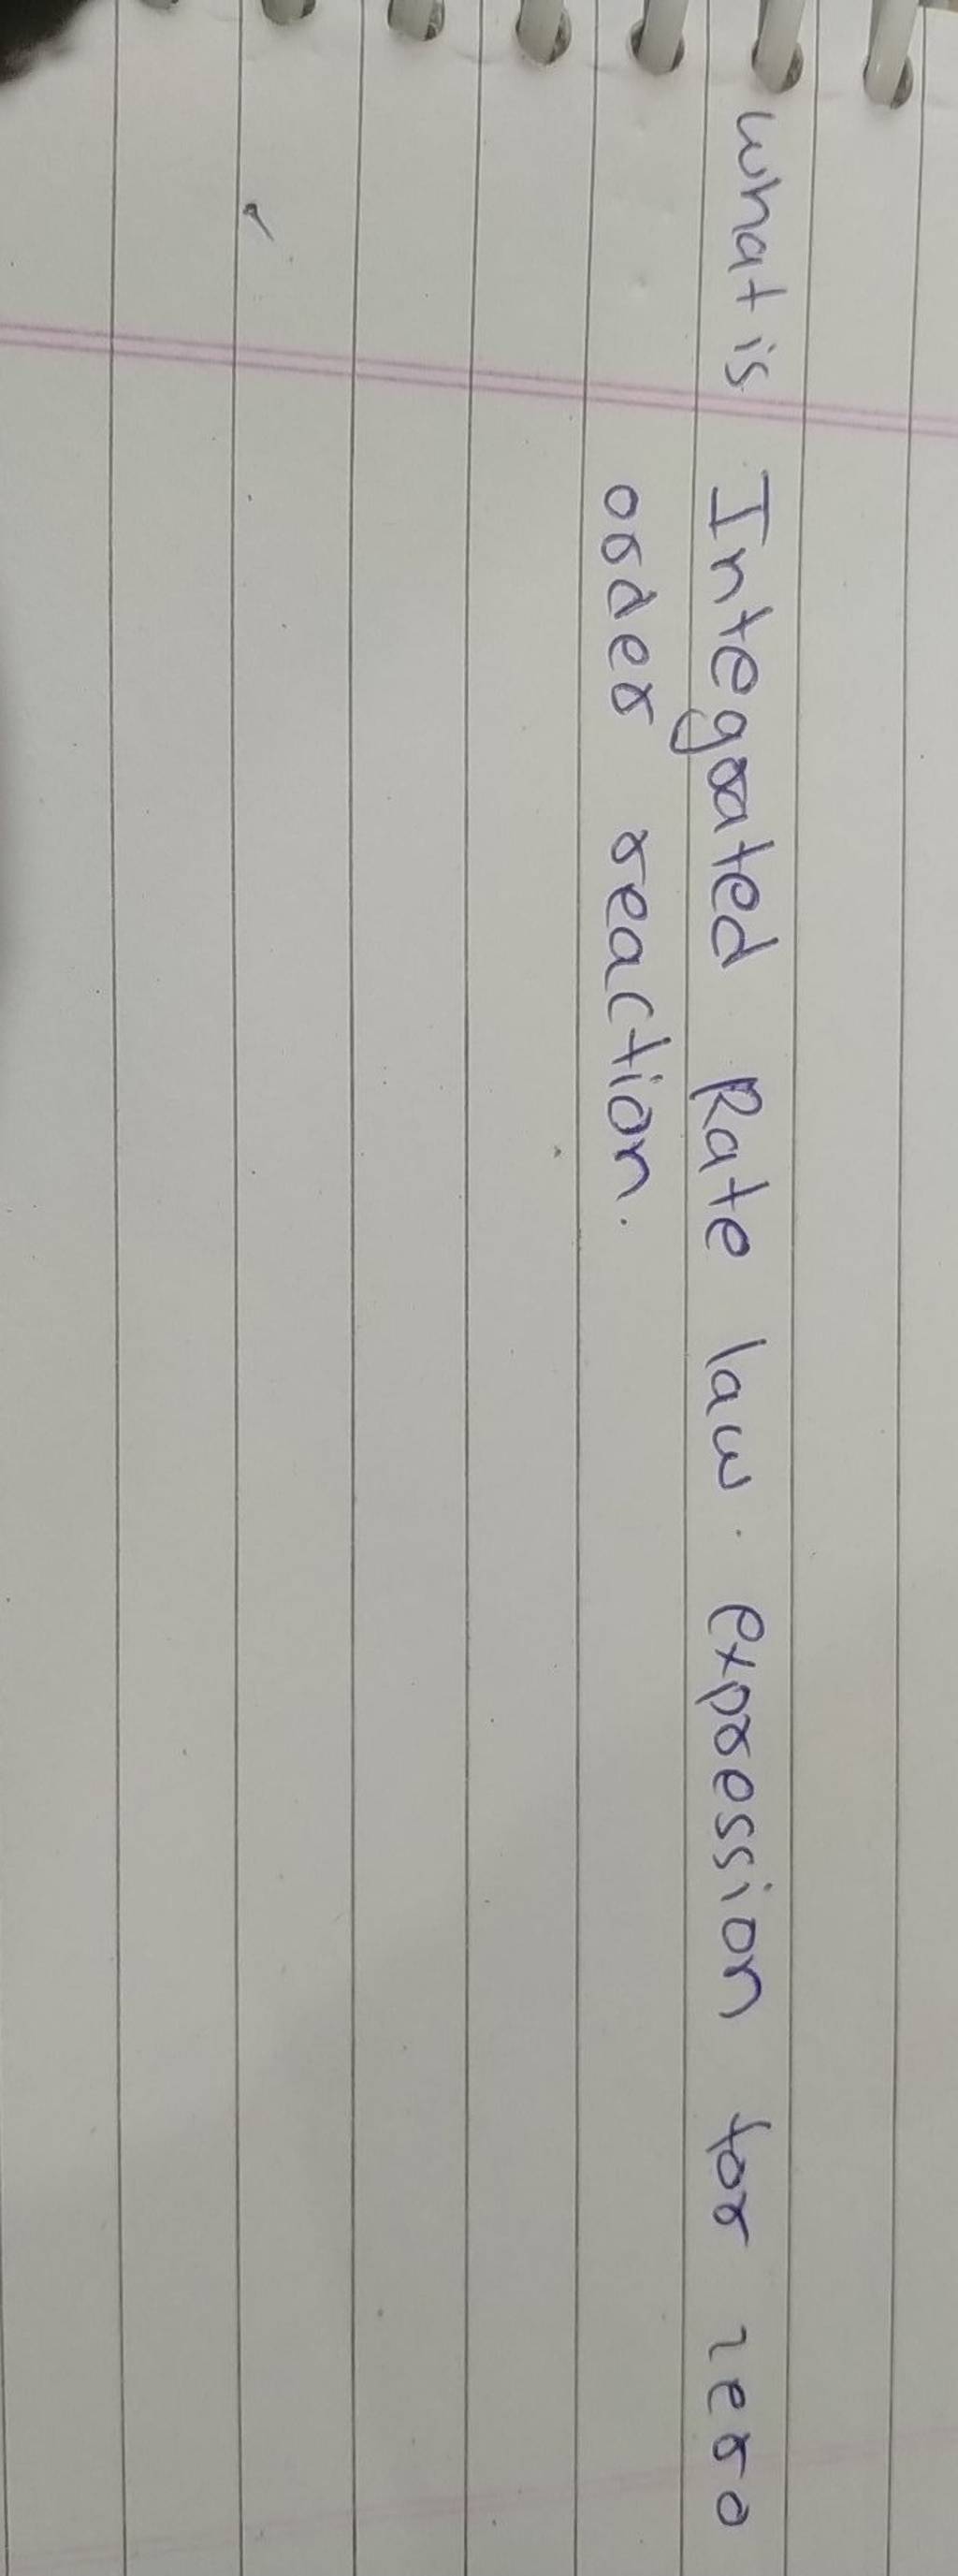 what is Integrated Rate law. expression for zero
order reaction.